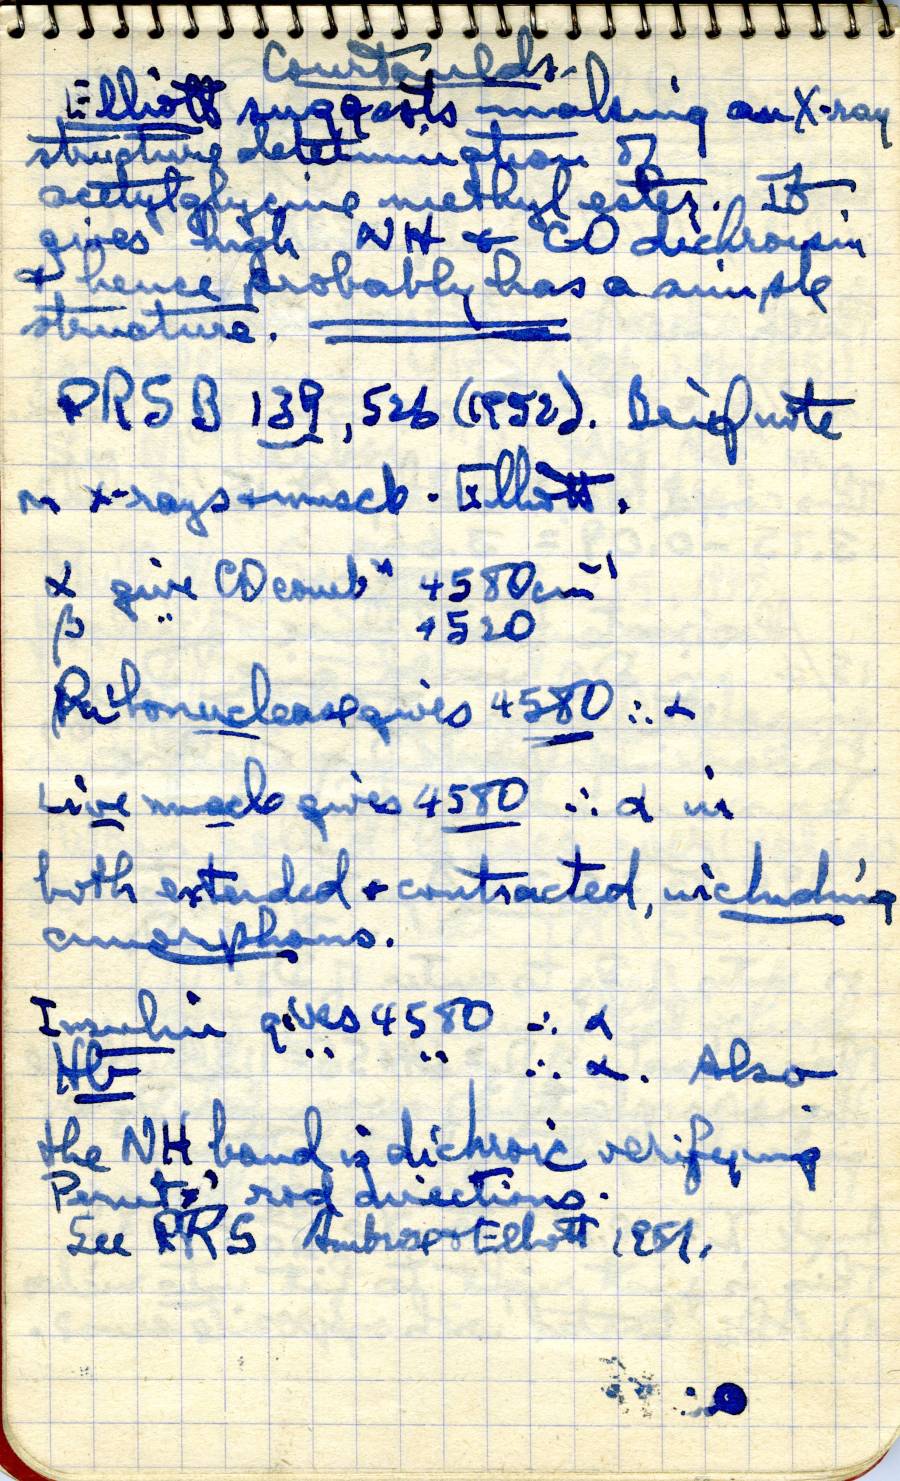 Courtaulds.
Elliott suggests making an X-ray
structure determination of
acetylglycine methyl ester. It
gives high NH & CO dichroism
& hence probably has a simple
structure.
PRS B 139, 526 (1952). Brief note
on x-rays & muscle. Elliott.
α give CO combn 4580cm-1
β " 4520
Ribonuclease gives 4580 ∴ α
Live muscle gives 4580 ∴ α in
both extended & contracted, including
amorphous.
Insulin gives 4580 ∴ α
Hb " " ∴ α. Also
the NH band is dichroic verifying
Perutz' rod directions.
See PRS Ambrose & Elliott 1951.